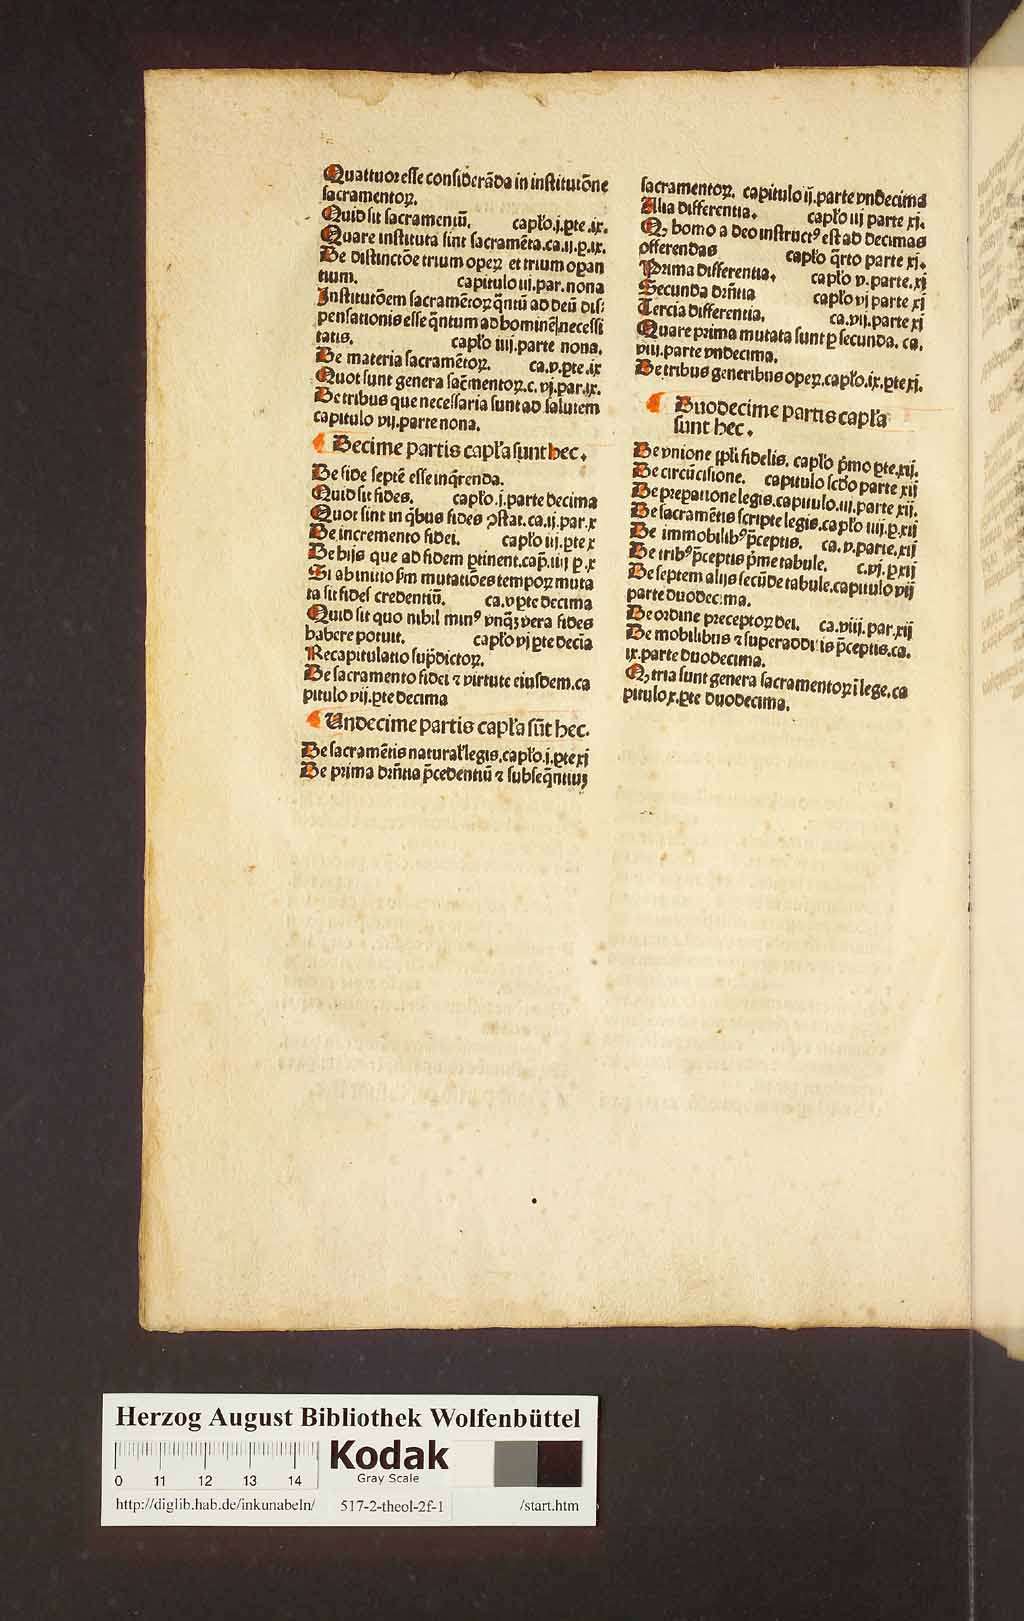 Quattuor esse considerāda in institutōne
sacramentoꝝ.
Quid sit sacramentū. capło.j.ꝑte.ix.
Quare instituta sint sacramēta.ca.ij.p.ix.
De distinctōe trium opeꝝ et trium operan
tium. capitulo iij.par.nona
Institutōem sacramētoꝝ q̄ntū ad deū dis⸗
pensationis esse q̄ntum ad hominē necessi
tatis. capło iiij.parte nona.
De materia sacramētoꝝ. ca.v.ꝑte.ix
Quot sunt genera sac̄mentoꝝ.c.vj.par.ix.
De tribus que necessaria sunt ad salutem
capitulo vij.parte nona.
Decime partis capła sunt hec.
De fide septē esse inq̄renda.
Quid sit fides. capło.j.parte decima
Quot sint in q̄bus fides ꝯstat.ca.ij.par.x
De incremento fidei. capło iij.ꝑte x
De hijs que ad fidem ꝑtinent.cap̄.iiij p.x
Si ab initio ẜm mutatiōes tempoꝝ muta
ta sit fides credentiū. ca.v ꝑte decima
Quid sit quo nihil minꝰ vnq̄ꝫ vera fides
habere potuit. capło vj ꝑte decīa
Recapitulatio sup̄dictoꝝ.
De sacramento fidei ⁊ virtute eiusdem.ca
pitulo vij.ꝑte decima
Undecime partis capła sūt hec.
De sacramētis natural'legis.capło.j.ꝑte xj
De prima dr̄ntia p̄cedentiū ⁊ subseq̄ntiuꝫ
sacramentoꝝ. capitulo ij.parte vndecima
Alia differentia. capło iij parte xj.
Qꝫ homo a deo instructꝰ est ad decimas
offerendas capło q̄rto parte xj.
Prima differentia. capło v.parte.xj
Secunda dr̄ntia capło vj parte xj
Tercia differentia. ca.vij.parte xj
Quare prima mutata sunt ꝑ secunda. ca.
viij.parte vndecima.
De tribus generibus opeꝝ.capło.ix.ꝑte xj.
Duodecime partis capła
sunt hec.
De vnione ꝓpli fidelis. capło p̄mo ꝑte.xij.
De circūcisione. capitulo scd̄o parte xij
De prepatione legis.capitulo.iij.parte xij.
De sacramētis scripte legis.capło iiij.p.xij
De immobilibꝰ p̄ceptis. ca.v.parte.xij
De tribꝰ p̄ceptis p̄me tabule. c.vj.p xij
De septem alijs secūde tabule.capitulo vij
parte duodecima.
De ordine preceptoꝝ dei. ca.viij.par.xij
De mobilibus ⁊ superadditis p̄ceptis.ca.
ix.parte duodecima.
Qꝫ tria sunt genera sacramentoꝝ ī lege.ca
pitulo x.ꝑte duodecima.
Herzog August Bibliothek Wolfenbüttel
Kodak
Gray Scale
0 11 12 13 14
http://diglib.hab.de/inkunabeln/ 517-2-theol-2f-1 /start.htm